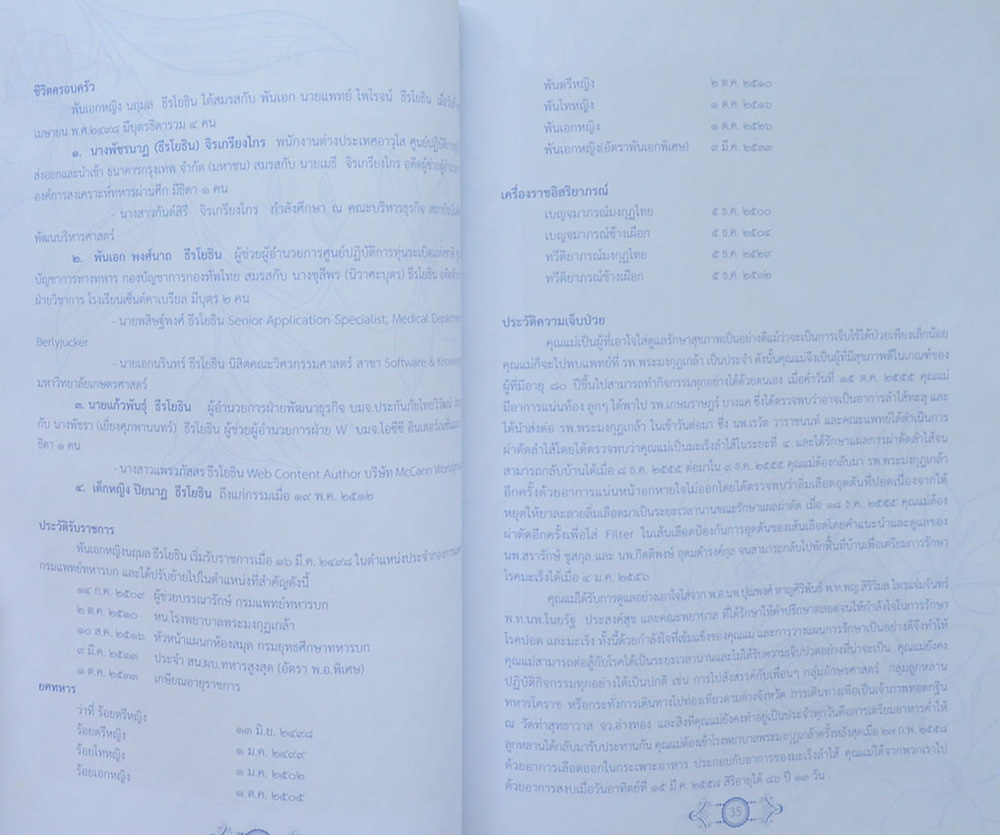 ชีวิตครอบครัว
พันเอกหญิง นฤมล ธีรโยธิน ได้สมรสกับ พันเอก นายแพทย์ ไพโรจน์ ธีรโยธิน เมื่อวันที่
เมษายน พ.ศ.๒๔๙๘ มีบุตรธิดารวม ๔ คน
๑. นางพัชรนาฏ (ธีรโยธิน) จิรเกรียงไกร พนักงานต่างประเทศอาวุโส
ส่งออกและนำเข้า ธนาคารกรุงเทพ จำกัด (มหาชน) สมรสกับ นายเมธี จิรเกรียงไกร อดีตผู้ช่วยผู้อำนวยการ
องค์การสงเคราะห์ทหารผ่านศึก มีธิดา ๑ คน
- นางสาวกันต์สิรี จิรเกรียงไกร กำลังศึกษา ณ คณะบริหารธุรกิจ
พัฒนบริหารศาสตร์
๒. พันเอก พงศ์นาถ ธีรโยธิน ผู้ช่วยผู้อำนวยการศูนย์ปฏิบัติการทุ่นระเบิดแห่งชาติ
บัญชาการทางทหาร กองบัญชาการกองทัพไทย สมรสกับ นางชุลีพร (นิวาศะบุตร) ธีรโยธิน
ฝ่ายวิชาการ โรงเรียนเซ็นต์คาเบรียล มีบุตร ๒ คน
- นายพสิษฐ์พงศ์ ธีรโยธิน Senior Application Specialist, Medical
Berlyjucker
- นายเอกนรินทร์ ธีรโยธิน นิสิตคณะวิศวกรรมศาสตร์ สาขา Software &
มหาวิทยาลัยเกษตรศาสตร์
๓. นายแก้วพันธุ์ ธีรโยธิน ผู้อำนวยการฝ่ายพัฒนาธุรกิจ บมจ.ประกันภัยไทยวิวัฒน์
กับ นางพัชรา (เยี่ยงศุภพานนทร์) ธีรโยธิน ผู้ช่วยผู้อำนวยการฝ่าย W บมจ.ไอซีซี
ธิดา ๑ คน
- นางสาวแพรวภัสสร ธีรโยธิน Web Content Author บริษัท McCann
๔. เด็กหญิง ปิยนาฏ ธีรโยธิน ถึงแก่กรรมเมื่อ ๑๙ พ.ค. ๒๕๑๒
ประวัติรับราชการ
พันเอกหญิงนฤมล ธีรโยธิน เริ่มรับราชการเมื่อ ๑๖ มี.ค. ๒๔๙๘ ในตำแหน่งประจำกอง
กรมแพทย์ทหารบก และได้ปรับย้ายไปในตำแหน่งที่สำคัญดังนี้
๑๔ ก.ค. ๒๕๐๙ ผู้ช่วยบรรณารักษ์ กรมแพทย์ทหารบก
๒ ต.ค. ๒๕๑๐ หน.โรงพยาบาลพระมงกุฎเกล้า
๑๐ ส.ค. ๒๕๑๖ หัวหน้าแผนกห้องสมุด กรมยุทธศึกษาทหารบก
๙ มี.ค. ๒๕๓๓ ประจำ สน.ผบ.ทหารสูงสุด (อัตรา พ.อ.พิเศษ)
๑ ต.ค. ๒๕๓๓ เกษียณอายุราชการ
ยศทหาร
ว่าที่ ร้อยตรีหญิง ๑๓ มิ.ย. ๒๔๙๘
ร้อยตรีหญิง ๑ ม.ค. ๒๔๙๙
ร้อยโทหญิง ๑ ม.ค. ๒๕๐๒
ร้อยเอกหญิง ๑ ต.ค. ๒๕๐๕
พันตรีหญิง ๒ ต.ค. ๒๕๑๐
พันโทหญิง ๑ ต.ค. ๒๕๑๖
พันเอกหญิง ๑ ต.ค. ๒๕๒๖
พันเอกหญิง(อัตราพันเอกพิเศษ) ๙ มี.ค. ๒๕๓๓
เครื่องราชอิสริยาภรณ์
เบญจมาภรณ์มงกุฎไทย ๕ ธ.ค. ๒๕๐๐
เบญจมาภรณ์ช้างเผือก ๕ ธ.ค. ๒๕๐๔
ทวีติยาภรณ์มงกุฎไทย ๕ ธ.ค. ๒๕๒๙
ทวีติยาภรณ์ช้างเผือก ๕ ธ.ค. ๒๕๓๒
ประวัติความเจ็บป่วย
คุณแม่เป็นผู้ที่เอาใจใส่ดูแลรักษาสุขภาพเป็นอย่างดีแม้ว่าจะเป็นการเจ็บไข้ได้ป่วยเพียงเล็กน้อย
คุณแม่ก็จะไปพบแพทย์ที่ รพ.พระมงกุฎเกล้า เป็นประจำ ดังนั้นคุณแม่จึงเป็นผู้ที่มีสุขภาพดีในเกณฑ์ของ
ผู้ที่มีอายุ ๘๐ ปีขึ้นไปสามารถทำกิจกรรมทุกอย่างได้ด้วยตนเอง เมื่อค่ำวันที่ ๑๕ ต.ค. ๒๕๕๕ คุณแม่
มีอาการแน่นท้อง ลูกๆ ได้พาไป รพ.เกษมราษฎร์ บางแค ซึ่งได้ตรวจพบว่าอาจเป็นอาการลำไส้ทะลุ และ
ได้นำส่งต่อ รพ.พระมงกุฎเกล้า ในเช้าวันต่อมา ซึ่ง นพ.เรวัต วาราชนนท์ และคณะแพทย์ได้ดำเนินการ
ผ่าตัดลำไส้โดยได้ตรวจพบว่าคุณแม่เป็นมะเร็งลำไส้ในระยะที่ ๔ และได้รักษาแผลการผ่าตัดลำไส้จน
สามารถกลับบ้านได้เมื่อ ๘ ธ.ค. ๒๕๕๕ ต่อมาใน ๙ ธ.ค. ๒๕๕๕ คุณแม่ต้องกลับมา รพ.พระมงกุฎเกล้า
อีกครั้งด้วยอาการแน่นหน้าอกหายใจไม่ออกโดยได้ตรวจพบว่าลิ่มเลือดอุดตันที่ปอดเนื่องจากได้
หยุดให้ยาละลายลิ่มเลือดมาเป็นระยะเวลานานขณะรักษาแผลผ่าตัด เมื่อ ๑๘ ธ.ค. ๒๕๕๕ คุณแม่ต้อง
ผ่าตัดอีกครั้งเพื่อใส่ Filter ในเส้นเลือดป้องกันการอุดตันของเส้นเลือดโดยคำแนะนำและดูแลของ
นพ.สรารักษ์ ชูสกุล และ นพ.กิตติพงษ์ อุดมดำรงค์กุล จนสามารถกลับไปพักฟื้นที่บ้านเพื่อเตรียมการรักษา
โรคมะเร็งได้เมื่อ ๔ ม.ค. ๒๕๕๖
คุณแม่ได้รับการดูแลอย่างเอาใจใส่จาก พ.อ.นพ.ปุณพงศ์ หาญศิริพันธุ์ พ.ท.พญ.สิริวิมล ไพรแจ่มจันทร์
พ.ท.นพ.ไนยรัฐ ประสงค์สุข และคณะพยาบาล ที่ได้รักษาให้คำปรึกษาตลอดจนให้กำลังใจในการรักษา
โรคปอด และมะเร็ง ทั้งนี้ด้วยกำลังใจที่เข้มแข็งของคุณแม่ และการวางแผนการรักษาเป็นอย่างดีจึงทำให้
คุณแม่สามารถต่อสู้กับโรคได้เป็นระยะเวลานานและไม่ได้รับความเจ็บปวดอย่างที่น่าจะเป็น คุณแม่ยังคง
ปฏิบัติกิจกรรมทุกอย่างได้เป็นปกติ เช่น การไปสังสรรค์กับเพื่อนๆ กลุ่มอักษรศาสตร์ กลุ่มลูกหลาน
ทหารโคราช หรือกระทั่งการเดินทางไปท่องเที่ยวตามต่างจังหวัด การเดินทางเพื่อเป็นเจ้าภาพทอดกฐิน
ณ วัดท่าสุทธาวาส จว.อ่างทอง และสิ่งที่คุณแม่ยังคงทำอยู่เป็นประจำทุกวันคือการเตรียมอาหารค่ำให้
ลูกหลานได้กลับมารับประทานกัน คุณแม่ต้องเข้าโรงพยาบาลพระมงกุฎเกล้าครั้งหลังสุดเมื่อ ๒๗ ก.พ. ๒๕๕๘
ด้วยอาการเลือดออกในกระเพาะอาหาร ประกอบกับอาการของมะเร็งลำไส้ คุณแม่ได้จากพวกเราไป
ด้วยอาการสงบเมื่อวันอาทิตย์ที่ ๑๕ มี.ค. ๒๕๕๘ สิริอายุได้ ๘๖ ปี ๑๓ วัน .
35